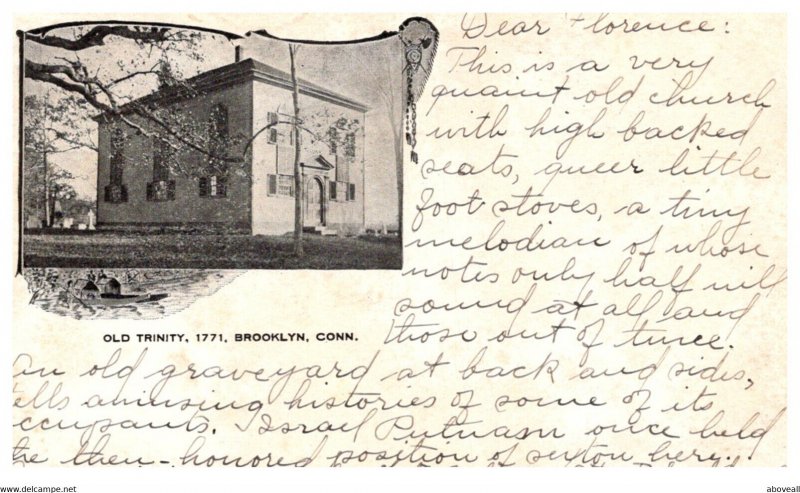 Dear Florence:
This is a very
quaint old church
with high backed
seats, queer little
foot stoves, a tiny
melodian of whose
notes only half will
sound at all and
those out of tune.
OLD TRINITY, 1771. BROOKLYN, CONN.
An old graveyard at back and sides,
tells amusing histories of some of its
occupants. Israel Putnam once held
the then-honored position of sexton here.
Copyright © 2024 HipPostcard.com
aboveall